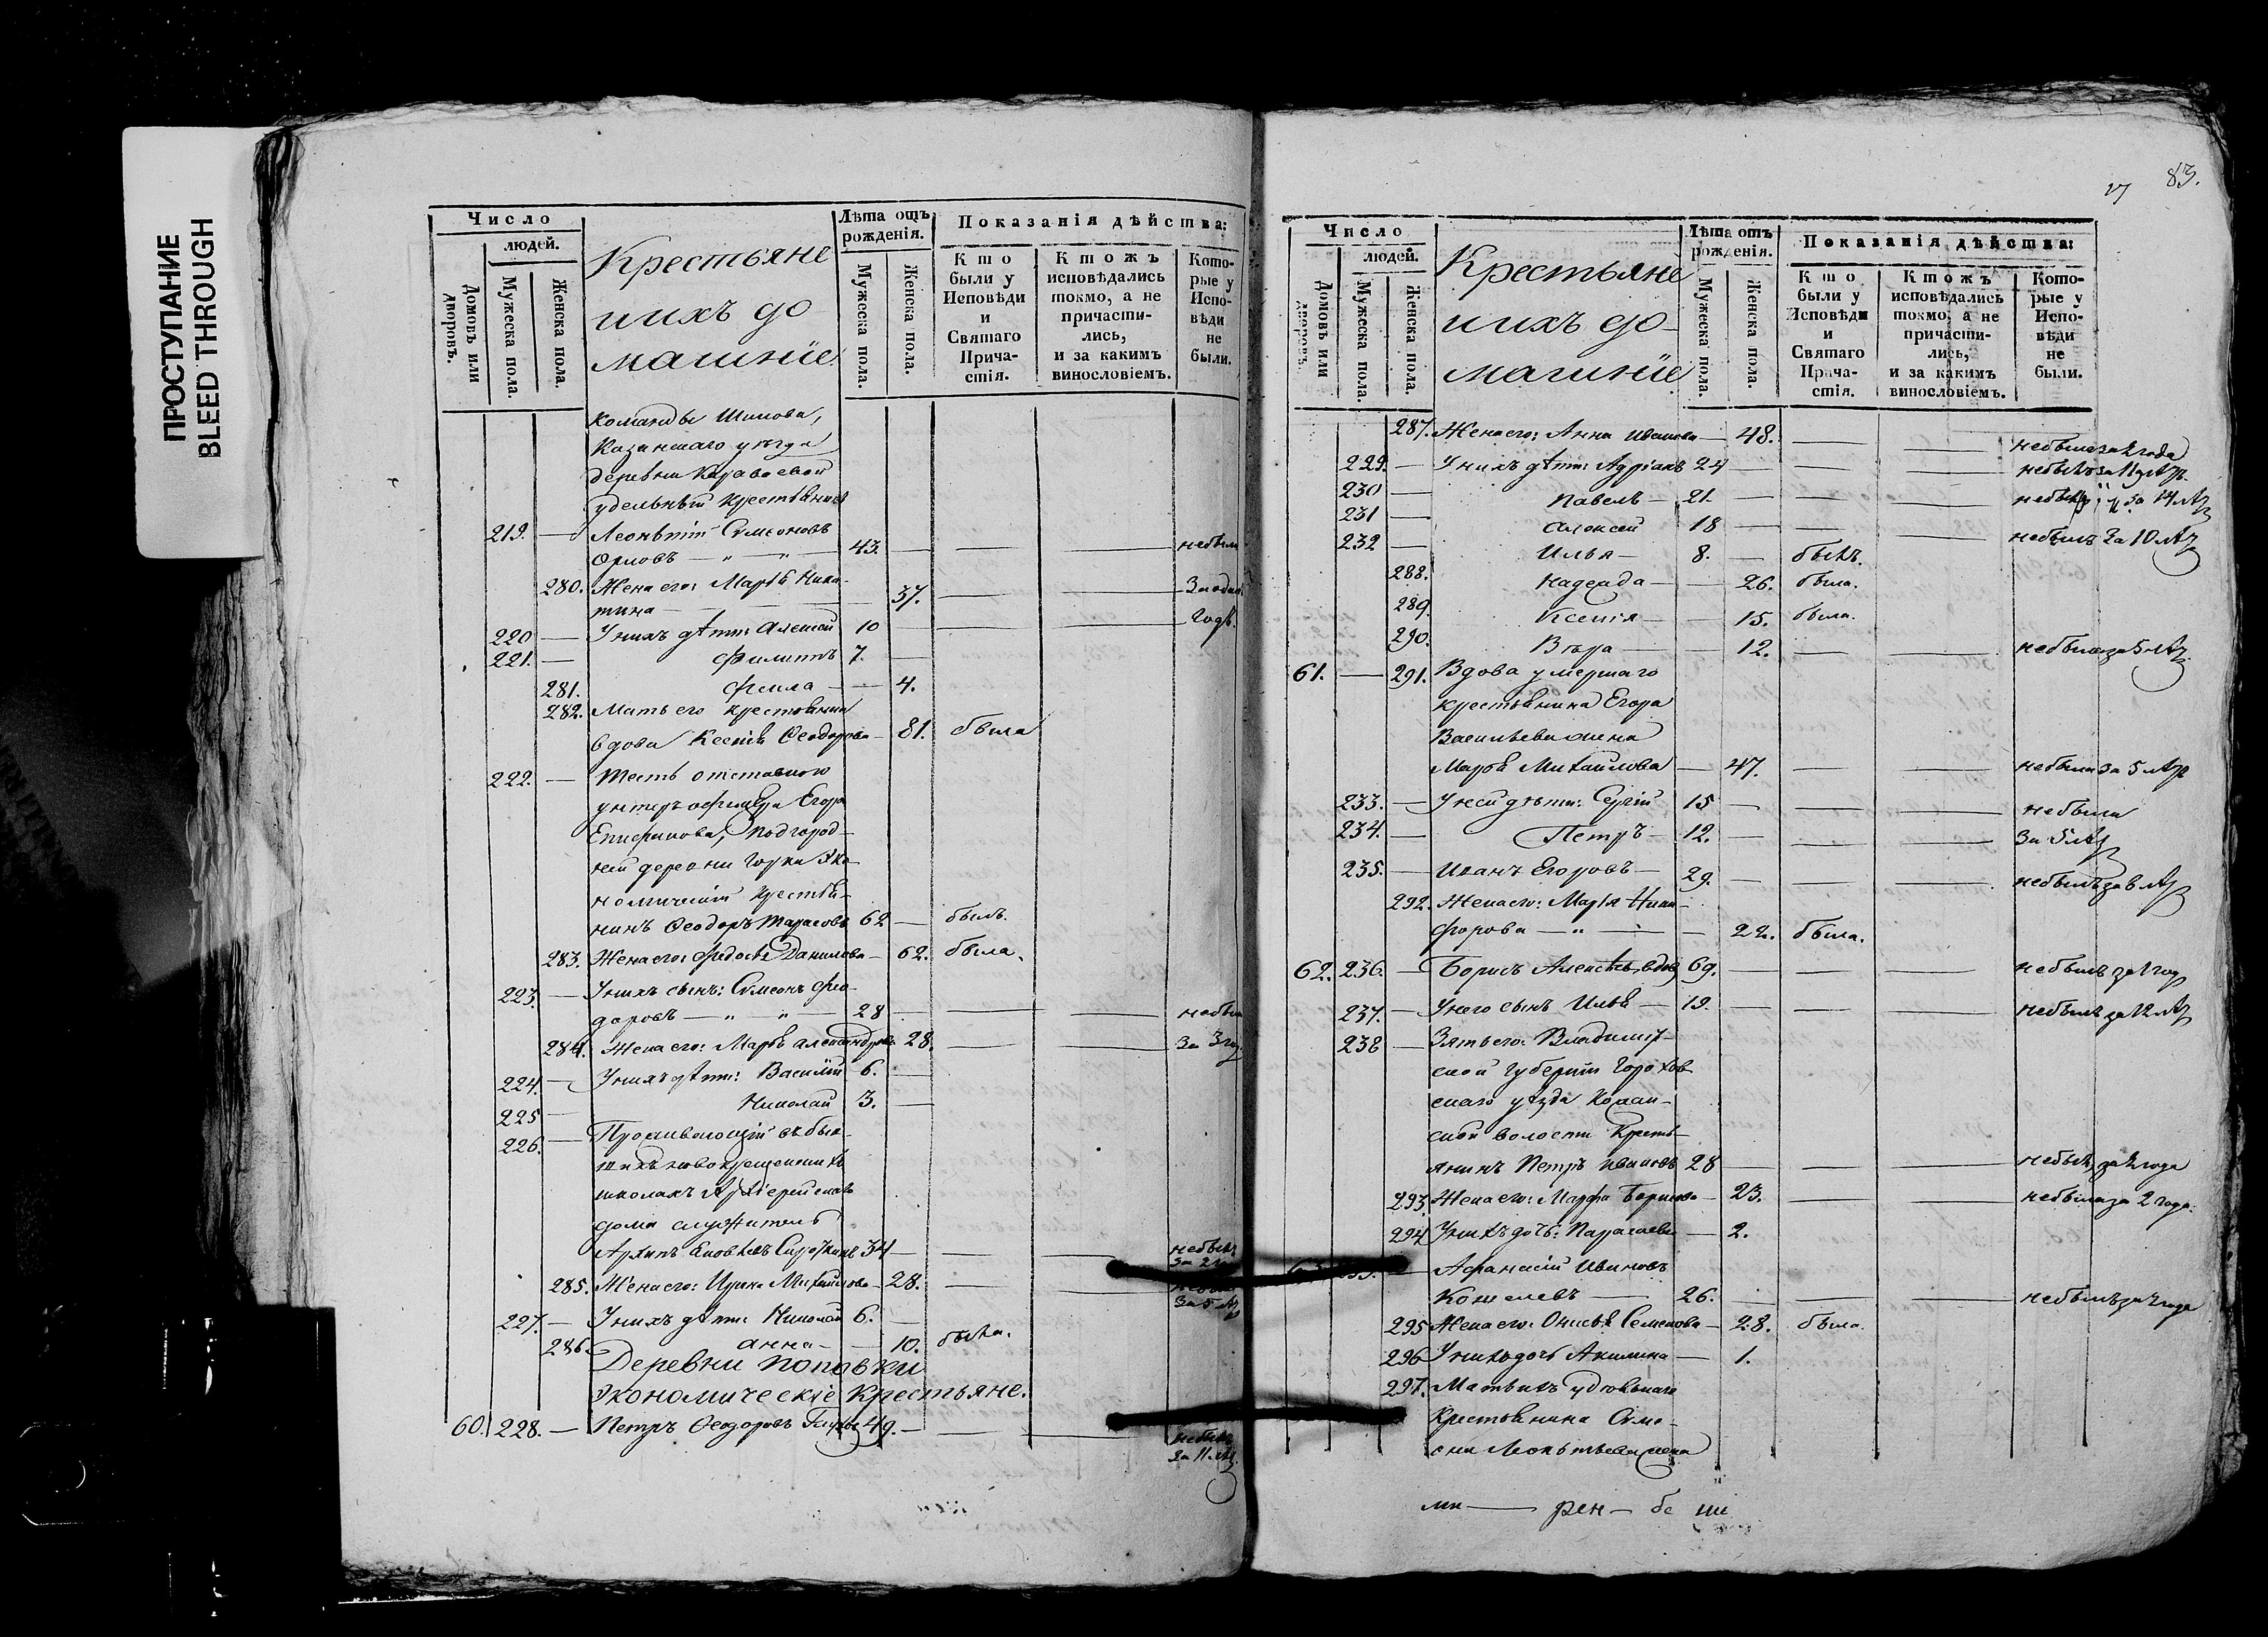 ПРОСТУПАНИЕ
BLEED THROUGH
Число
людей.
Домовъ или дворовъ.
Мужеска пола.
Женска пола.
Крестьяне
и ихъ до
машніе
Лѣта отъ рожденія.
Мужеска пола.
Женска пола.
Показанія дѣйства:
Кто были у Исповѣди и Святаго Прича-стія.
Ктожъ исповѣдались токмо, а не причасти-лись, и за какимъ винословіемъ.
Кото-рые у Испо-вѣди не были.
команды Шипова,
Казанскаго уѣзда
деревни Караваевой
удельный крестьянинъ
219. — Леонтій Симеоновъ
Орловъ — " — " — 43. — — — небыли
280. Жена его: Марья Ники-
тина — — — 37. — — За одинъ
220 — У нихъ дѣти: Алексей 10 — — годъ.
221. — Филиппъ 7. —
281. Фекла — — 4.
282. Мать его крестьянка
вдова Ксенія Феодорова — 81. была
222. — Тесть отставного
унтеръ офицера Егора
Епифанова, Подгород-
ней деревни Горки Эко-
номическій крестья-
нинъ Феодоръ Тарасовъ 62 — былъ.
283. Жена его: Федосья Данилова — 62. была.
223. — У нихъ сынъ: Симеонъ Фео-
доровъ — " — " — 28 — — — небыли
284. Жена его: Марья Александрова 28. — — За 3 год.
224. — У нихъ дѣти: Василій 6. —
225 — Николай 3. —
226. — Проживающій въ быв-
шихъ новокрещенскихъ
школахъ Архіерейскаго
дома служитель
Архипъ Яковлевъ Сироткинъ 34 — — — небылъ
За 2 г.
285. Жена его: Ирина Михайлова — 28. — —
За 5 лѣ
227. — У нихъ дѣти: Николай 6. —
286. Анна — — 10. была.
Деревни Поповки
экономическіе крестьяне.
60. 228. — Петръ Феодоровъ 49. — — — небылъ
за 11 лѣ
83.
Число
людей.
Домовъ или дворовъ.
Мужеска пола.
Женска пола.
Крестьяне
и ихъ до-
машніе
Лѣта отъ рожденія.
Мужеска пола.
Женска пола.
Показанія дѣйства:
Кто были у Исповѣди и Святаго Прича-стія.
Ктожъ исповѣдались токмо, а не причасти-лись, и за какимъ винословіемъ.
Кото-рые у Испо-вѣди не были.
287. Жена его: Анна Иванова — 48. — — небыла за 2 года
229. — У нихъ дѣти: Адріанъ 24 — — — небылъ за 11 лѣ
230 — Павелъ — 21. — — — небылъ за 14 лѣ
231 — Алексей 18 — — — небылъ за 10 лѣ
232 — Илья — 8. — былъ.
288. Надежда — — 26. была.
289. Ксенія — — 15. была.
290. Вѣра — — 12. — — небыла за 5 лѣ
61. — 291. Вдова умершаго
крестьянина Егора
Васильева жена
Марья Михайлова — 47. — — небыла за 5 лѣ
233. — У ней дѣти: Сергій 15 — — — небыли
234. — Петръ — 12. — — — За 5 лѣ
235. — Иванъ Егоровъ — 29. — — — небылъ за 6 лѣ
292. Жена его: Марья Ники-
форова — " — — 22. была.
62. 236. — Борисъ Алексѣевъ, вдовъ 69. — — — небылъ за 1 год
237. — У него сынъ Илья — 19. — — — небылъ за 12 лѣ
238 — Зять его: Владимір-
ской губерніи Горохов-
скаго уѣзда
ской волости Кресть-
янинъ Петръ Ивановъ 28 — — — небылъ за 2 года
293. Жена его: Марфа Борисова — 23. — — небыла за 2 года.
294 У нихъ дочь: Парасковья — 2.
Афанасій Ивановъ
Кошелевъ — 26. — — — небылъ за 2 года
295 Жена его: Онисья Семенова — 28. была.
296 У нихъ дочь Акилина — 1.
297. Мать ихъ удѣльнаго
Крестьянина Симе-
она Леонтьева жена
рен —